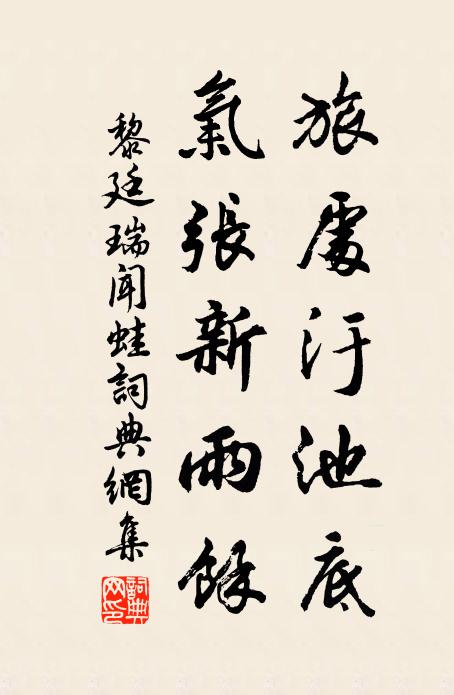 旅處汙池底
氣張新雨餘
黎廷瑞聞蛙詞典網集
詞典網印